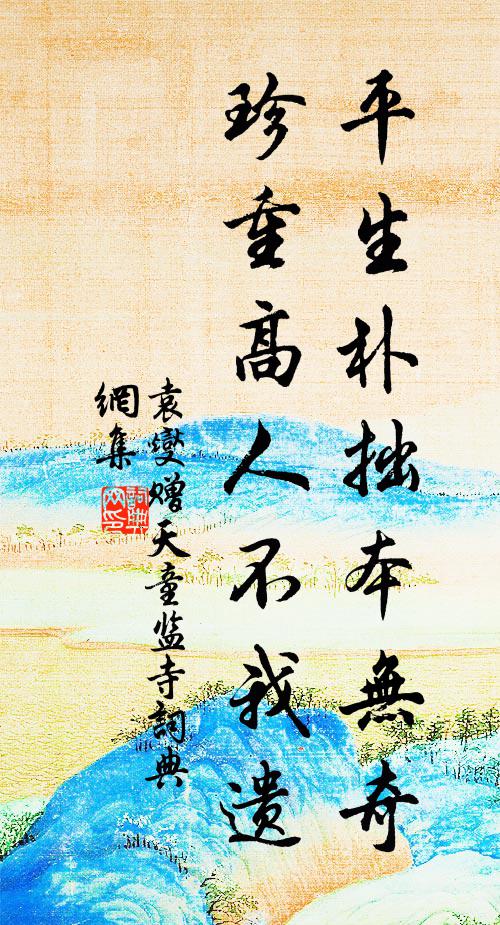 平生朴拙本無奇
珍重高人不我遗
袁燮赠天童监寺詞典
網集
詞典
网印